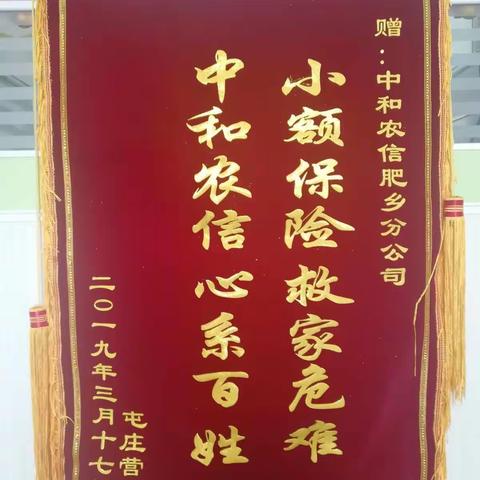 赠：中和农信肥乡分公司
小额保险救家危难
中和农信心系百姓
屯庄营
二〇一九年三月十七